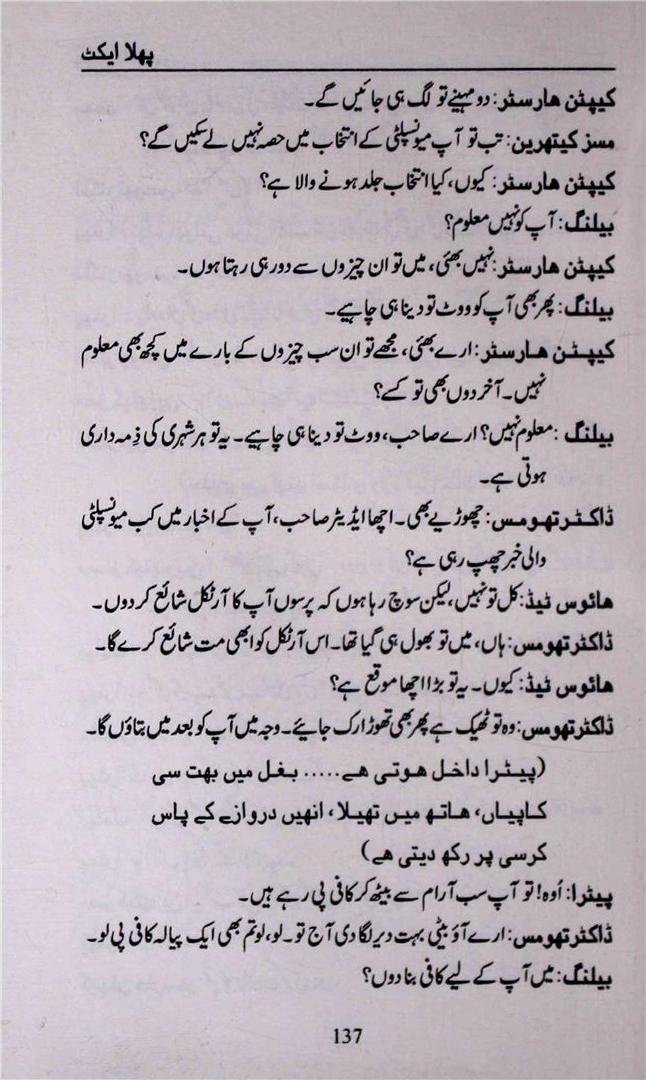 پھلا ایکٹ
کیپٹن ھارسٹر: دو مہینے تو لگ ہی جائیں گے۔
مسز کیتھرین: تب تو آپ میونسپلٹی کے انتخاب میں حصہ نہیں لے سکیں گے؟
کیپٹن ھارسٹر: کیوں، کیا انتخاب جلد ہونے والا ہے؟
بیلنگ: آپ کو نہیں معلوم؟
کیپٹن ھارسٹر: نہیں بھئی، میں تو ان چیزوں سے دور ہی رہتا ہوں۔
بیلنگ: پھر بھی آپ کو ووٹ تو دینا ہی چاہیے۔
کیپٹن ھارسٹر: ارے بھئی، مجھے تو ان سب چیزوں کے بارے میں کچھ بھی معلوم
نہیں۔ آخر دوں بھی تو کسے؟
بیلنگ: معلوم نہیں؟ ارے صاحب، ووٹ تو دینا ہی چاہیے۔ یہ تو ہر شہری کی ذِمہ داری
ہوتی ہے۔
ڈاکٹر تھومس: چھوڑیے بھی۔ اچھا ایڈیٹر صاحب، آپ کے اخبار میں کب میونسپلٹی
والی خبر چھپ رہی ہے؟
ھائوس ٹیڈ: کل تو نہیں، لیکن سوچ رہا ہوں کہ پرسوں آپ کا آرٹکل شائع کر دوں۔
ڈاکٹر تھومس: ہاں، میں تو بھول ہی گیا تھا۔ اس آرٹکل کو ابھی مت شائع کرے گا۔
ھائوس ٹیڈ: کیوں۔ یہ تو بڑا اچھا موقع ہے؟
ڈاکٹر تھومس: وہ تو ٹھیک ہے پھر بھی تھوڑا رک جائیے۔ وجہ میں آپ کو بعد میں بتاؤں گا۔
(پیٹرا داخل ھوتی ھے..... بغل میں بھت سی
کاپیاں، ھاتھ میں تھیلا، انھیں دروازے کے پاس
کرسی پر رکھ دیتی ھے)
پیٹرا: اُوہ! تو آپ سب آرام سے بیٹھ کر کافی پی رہے ہیں۔
ڈاکٹر تھومس: ارے آؤ بیٹی بہت دیر لگا دی آج تو۔ لو، لو تم بھی ایک پیالہ کافی پی لو۔
بیلنگ: میں آپ کے لیے کافی بنا دوں؟
137